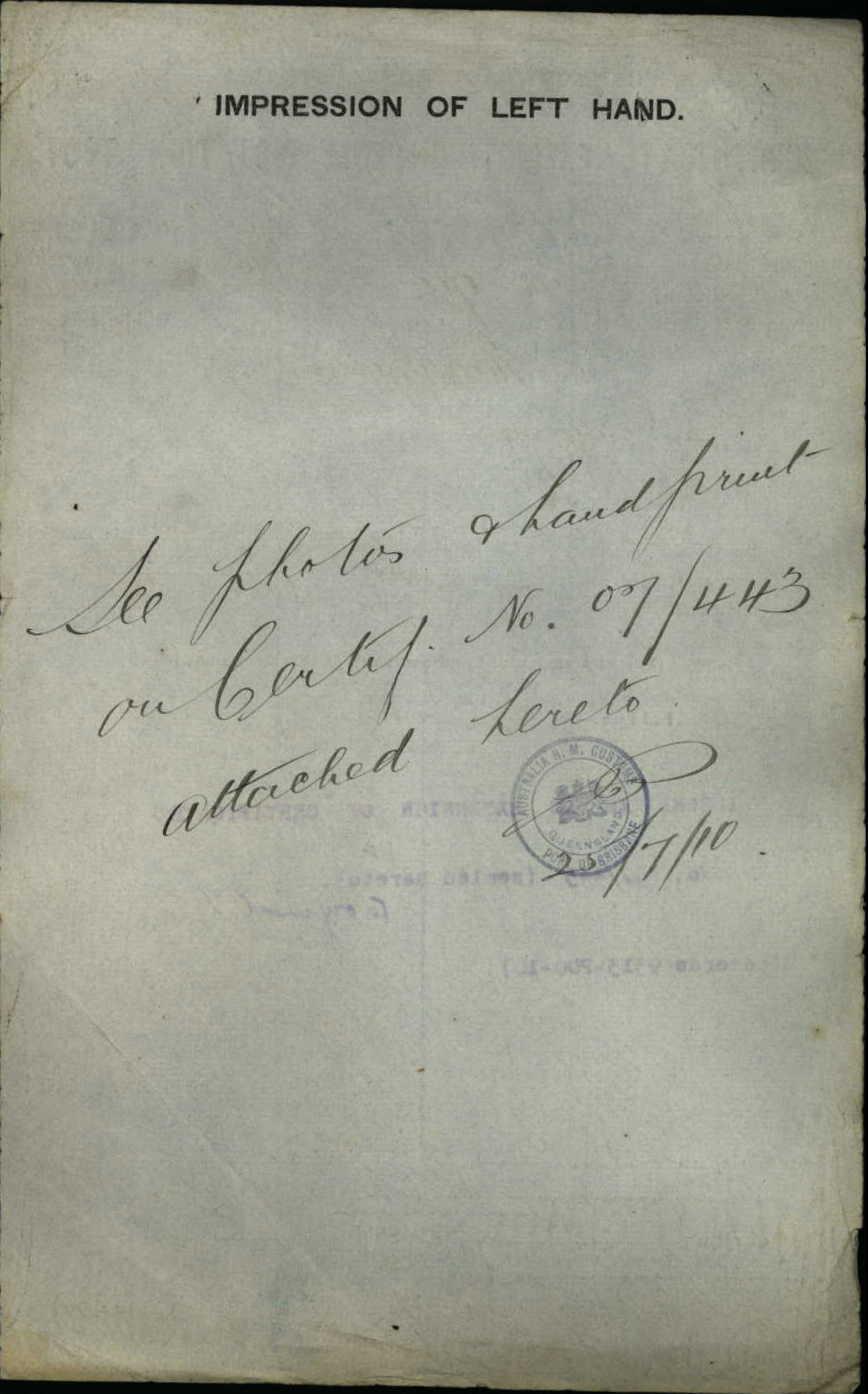 IMPRESSION OF LEFT HAND.
See photos & handprint
on Certif. No. 07/443
attached hereto
AUSTRALIA H. M. CUSTOMS
QUEENSLAND
PORT OF BRISBANE
/7/10.